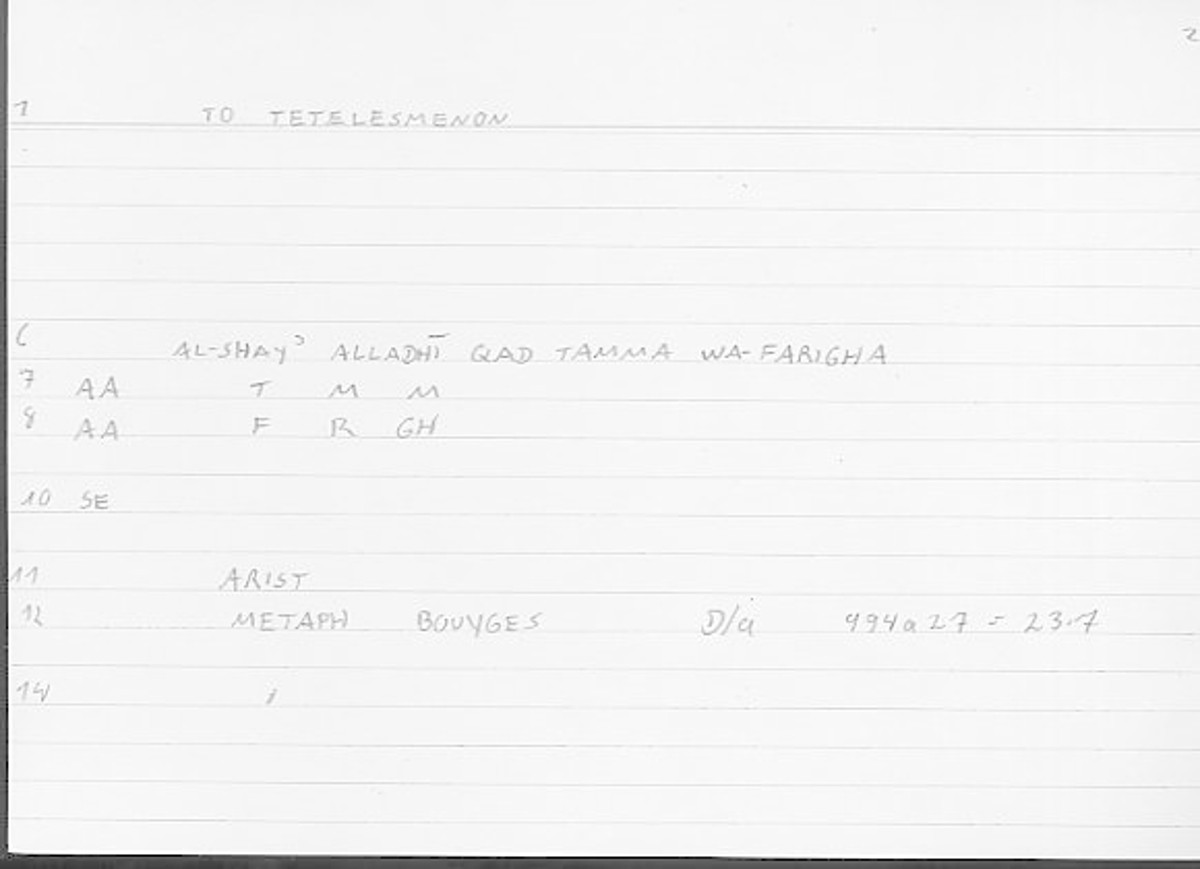 2
1 TO TETELESMENON
6 AL-SHAYʾ ALLADHĪ QAD TAMMA WA-FARIGHA
7 AA T M M
8 AA F R GH
10 SE
11 ARIST
12 METAPH BOUYGES D/a 994a27 = 23.7
14 /